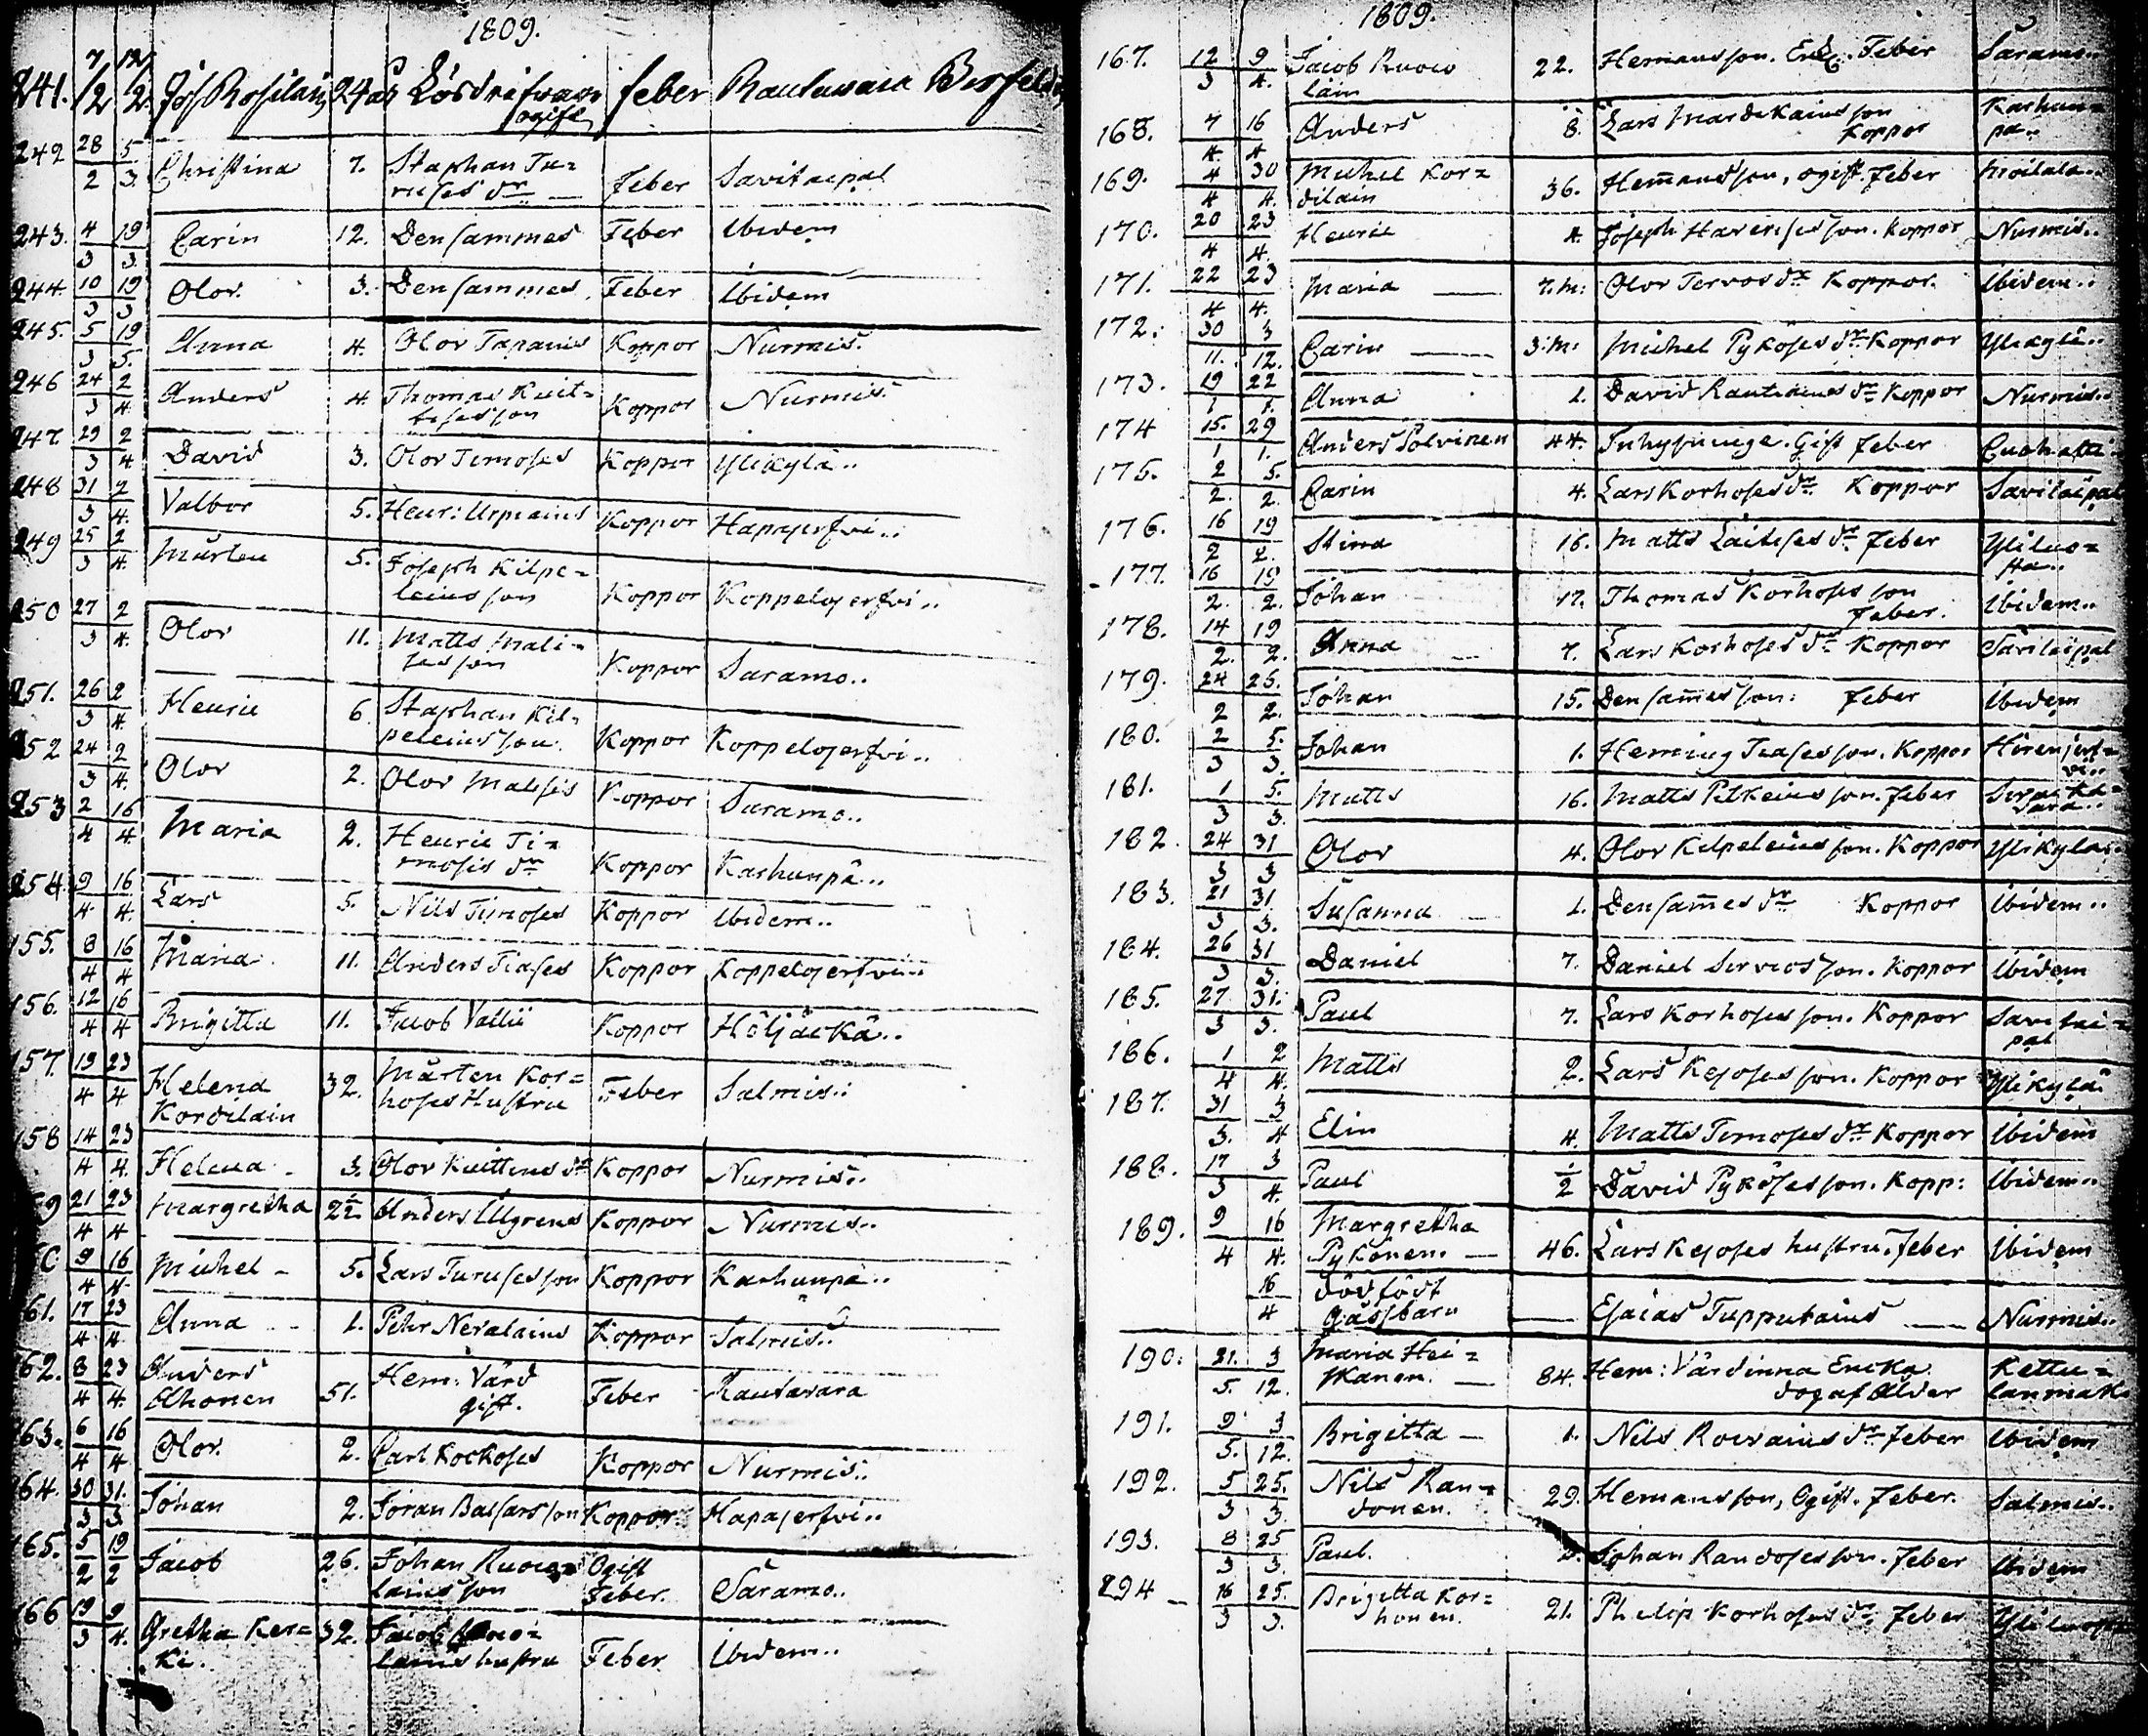 1809.
241. 7/2 12/2 Jos Rosilain 24 år Lösdrifvare ogift feber Rautavara
242 28/2 5/3 Christina 7. Staphan Tu=
ruses dr Feber Savitaipal
243. 4/3 19/3 Carin 12. Den sammes Feber Ibidem
244. 10/3 19/3 Olov. 3. Den sammes Feber Ibidem
245. 5/3 19/5 Anna 4. Olov Tapanis Koppor Nurmis.
246 24/3 2/4 Anders 4. Thomas Kuit=
tises son Koppor Nurmis.
247 29/3 2/4 David 3. Olov Timoses Koppor Ylikylä..
248 31/3 2/4 Valbor 5. Henr: Urpiains Koppor Hapajerfvi..
249 25/3 2/4 Mårten 5. Joseph Kilpe=
leins son Koppor Koppelojerfvi..
250 27/3 2/4 Olov 11. Matts Mali=
ses son Koppor Saramo..
251. 26/3 2/4 Henric 6. Staphan Kil=
peleins son. Koppor Koppelojerfvi..
252 24/3 2/4 Olov 2. Olov Malisis Koppor Saramo..
253 2/4 16/4 Maria 2. Henric Ti=
mosis dr Koppor Karhunpä..
254. 9/4 16/4 Lars 5. Nils Timoses Koppor Ibidem..
155. 8/4 16/4 Maria. 11. Anders Tiases Koppor Koppelojerfvi..
156. 12/4 16/4 Brigitta 11. Jacob Vallii Koppor Höljäckä..
157. 19/4 23/4 Helena
Kordilain 32. Mårten Kor=
hoses Hustru Feber Salmis..
158 14/4 23/4 Helena - 3. Olov Kuittins dr Koppor Nurmis..
59 21/4 23/4 Margretha 2½ Anders Ulgrens Koppor Nurmis..
9/4 16/4 Michel - 5. Lars Turuses son Koppor Karhunpä..
61. 17/4 23/4 Anna 1. Pehr Nevalains Koppor Salmis..
162. 8/4 23/4 Anders
Ahonen 51. Hem: Värd
gift. Feber Rautavara
163. 6/4 16/4 Olov. 2. Carl Kockoses Koppor Nurmis..
164. 30/3 31/3 Johan 2. Jöran Balsars son Koppor Hapajerfvi..
165. 5/2 19/2 Jacob 26. Johan Ruova
lains son Ogift
Feber. Saramo..
166 19/3 9/4 Gretha Ker=
ki.. 32. Jacob
lains hustru Feber Ibidem..
1809.
167. 12/3 9/4 Jacob Ruova
lain 22. Hemansson. Feber Saramo..
168. 7/4 16/4 Anders 8. Lars Mardikains son
Koppor Karhun=
pä..
169. 4/4 30/4 Michel Kor=
dilain 36. Hem̄ansson, ogift. Feber Moilala..
170. 20/4 23/4 Henric 4. Joseph Harinises son. Koppor Nurmis..
171. 22/4 23/4 Maria 7.m: Olov Tervos dr Koppor. Ibidem..
172. 30/11. 3/12. Carin 3.m: Michel Pyköses dr Koppor Ylikylä..
173. 19/1 22/1. Anna 1. David Rautiains dr Koppor Nurmis..
174 15./1 29/1. Anders Polvinen 44. Inhysinge. Gift Feber Cuohatti
175. 2/2. 5./2. Carin 4. Lars Korhoses dr Koppor Savitaipal
176. 16/2 19/2. Stina 16. Matts Laitises dr Feber Yliluo=
sta..
177. 16/2. 19/2. Johan 17. Thomas Korhoses son
Feber. Ibidem..
178. 14/2. 19/2. Anna 7. Lars Korhoses dr Koppor Savitaipal
179. 24/2 25./2. Johan 15. Den sam̄es son: Feber Ibidem
180. 2/3 5./3. Johan 1. Heming Tiases son. Koppor Hirvijerf=
vi..
181. 1/3 5./3. Matts 16. Matts Pitkeins son. Feber
182. 24/3 31/3 Olov 4. Olov Kilpeleins son. Koppor Ylikylä..
183. 21/3 31/3. Susanna 1. Den sam̄es dr Koppor Ibidem..
184. 26/3 31/3. Daniel 7. Daniel Servios son. Koppor Ibidem
185. 27/3 31./3. Paul 7. Lars Korhoses son. Koppor Savitai=
pal
186. 1/4 2/4. Matts 2. Lars Kejoses son. Koppor Ylikylä
187. 31/3. 3/4 Elin 4. Matts Timoses dr Koppor Ibidem
188. 17/3 3/4. Paul ½ David Pyköses son. Kopp: Ibidem..
189. 9/4 16/4. Margretha
Pykönen. 46. Lars Kejoses hustru. Feber Ibidem
16/4 död född
Gåssbarn Esaias Tupputains Nurmis..
190: 21./5. 3/12. Maria Hei=
skanen. 84. Hem: Värdinna Encka
dog af Ålder Kettu=
lanmäki
191. 9/5. 3/12. Brigitta 1. Nils Rovains dr Feber Ibidem
192. 5/3 25./3. Nils Ran=
donen. 29. Hemansson, Ogift. Feber. Salmis..
193. 8/3 25/3. Paul. Johan Randoses son. Feber Ibidem
294 16/3 25./3. Brigitta Kor=
honen. 21. Philip Korhoses dr Feber Yliluosta